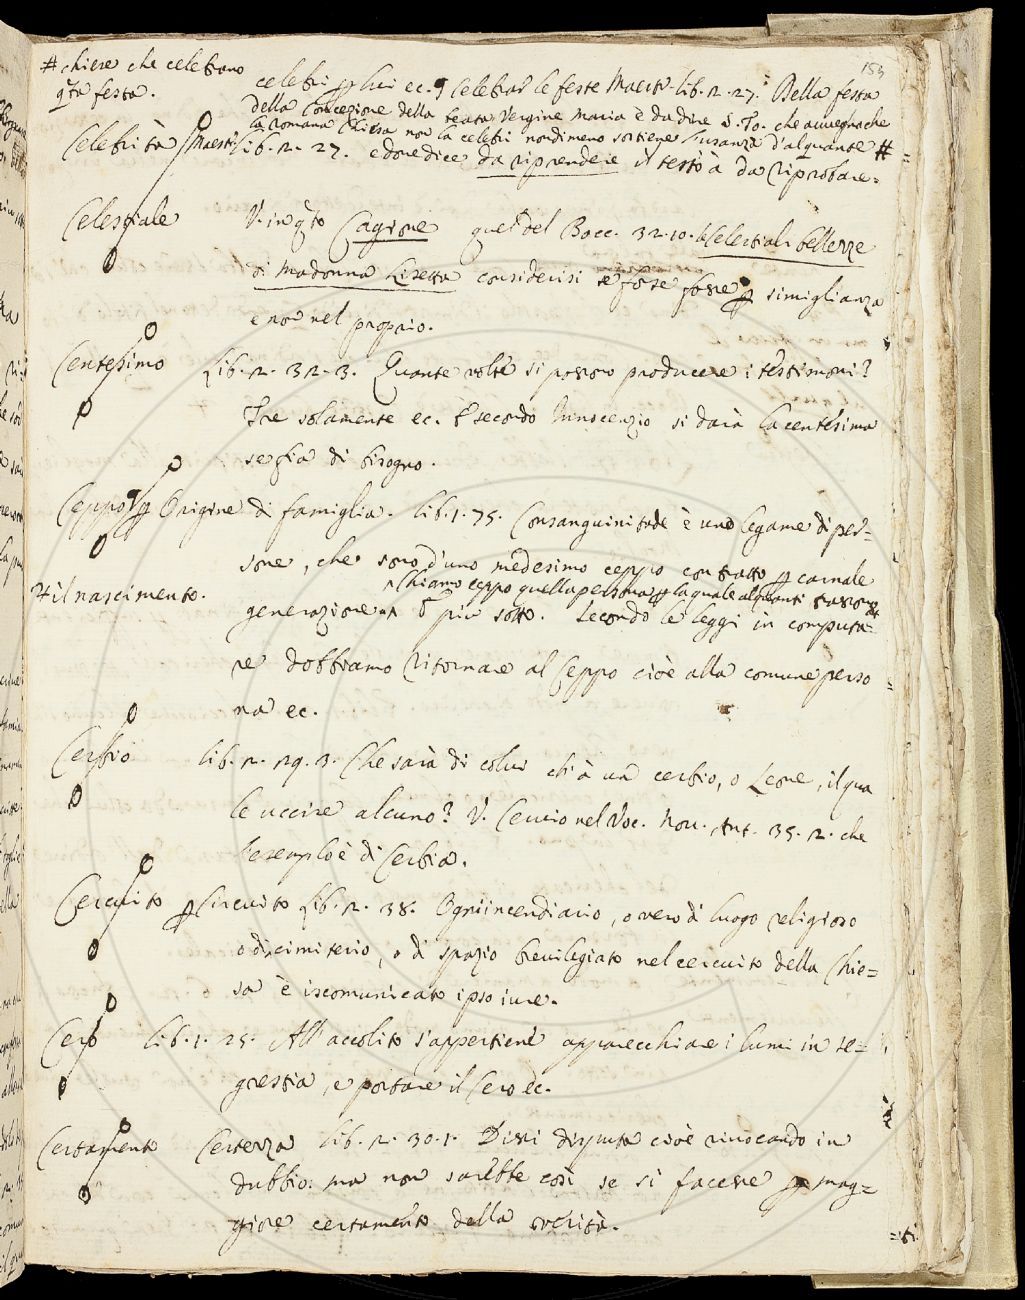 153
# chiese che celebrano
qta festa.
celebri p lui ec. q Celebrar le feste Maestr. lib. 2. 27. Della festa
della Concezione della beata Vergine Maria è da dire S. To. che avvegnache
la romana Chiesa non la celebri nondimeno sostiene l'usanza d'alquante #
Celebrità Maestr. lib. 2. 27. e dove dice da riprendere il testo à da riprobare.
Celestiale V. in qto Cagione quel del Bocc. 32. 10. le Celestiali bellezze
di Madonna Lisetta considerisi se forse fosse p simiglianza
e non nel proprio.
Centesimo Lib. 2. 32. 3. Quante volte si possono producere i testimoni?
Tre solamente ec. E secondo Innocenzio si darà la centesima
se fia di bisogno.
Ceppo p Origine di famiglia. Lib. 1. 75. Consanguinitade è uno legame di per=
sone, che sono d'uno medesimo ceppo contratto p carnale
Chiamo ceppo quella persona p la quale alquanti trassono #
# il nascimento.
generazione. E più sotto. Secondo le leggi in computa=
re dobbiamo ritornare al Ceppo cioè alla comune perso=
na ec.
Cerbio lib. 2. 29. 3. Che sarà di colui ch'à un cerbio, o Leone, il qua
le uccise alcuno? V. Cervio nel Voc. Nov. Ant. 35. 2. che
l'esemplo è di Cerbia.
Cercuito p Circuito Lib. 2. 38. Ogni incendiario, o vero di luogo religioso
o di cimiterio, o di spazio brevilegiato nel cercuito della Chie=
sa è iscomunicato ipso iure.
Cero Lib. 1. 25. All'accolito s'appertiene apparecchiare i lumi in se=
grestia, e portare il Cero ec.
Certamento Certezza Lib. 2. 30. 1. Dissi disputa cioè rivocando in
dubbio: ma non sarebbe così se si facesse p mag=
giore certamento della verità.